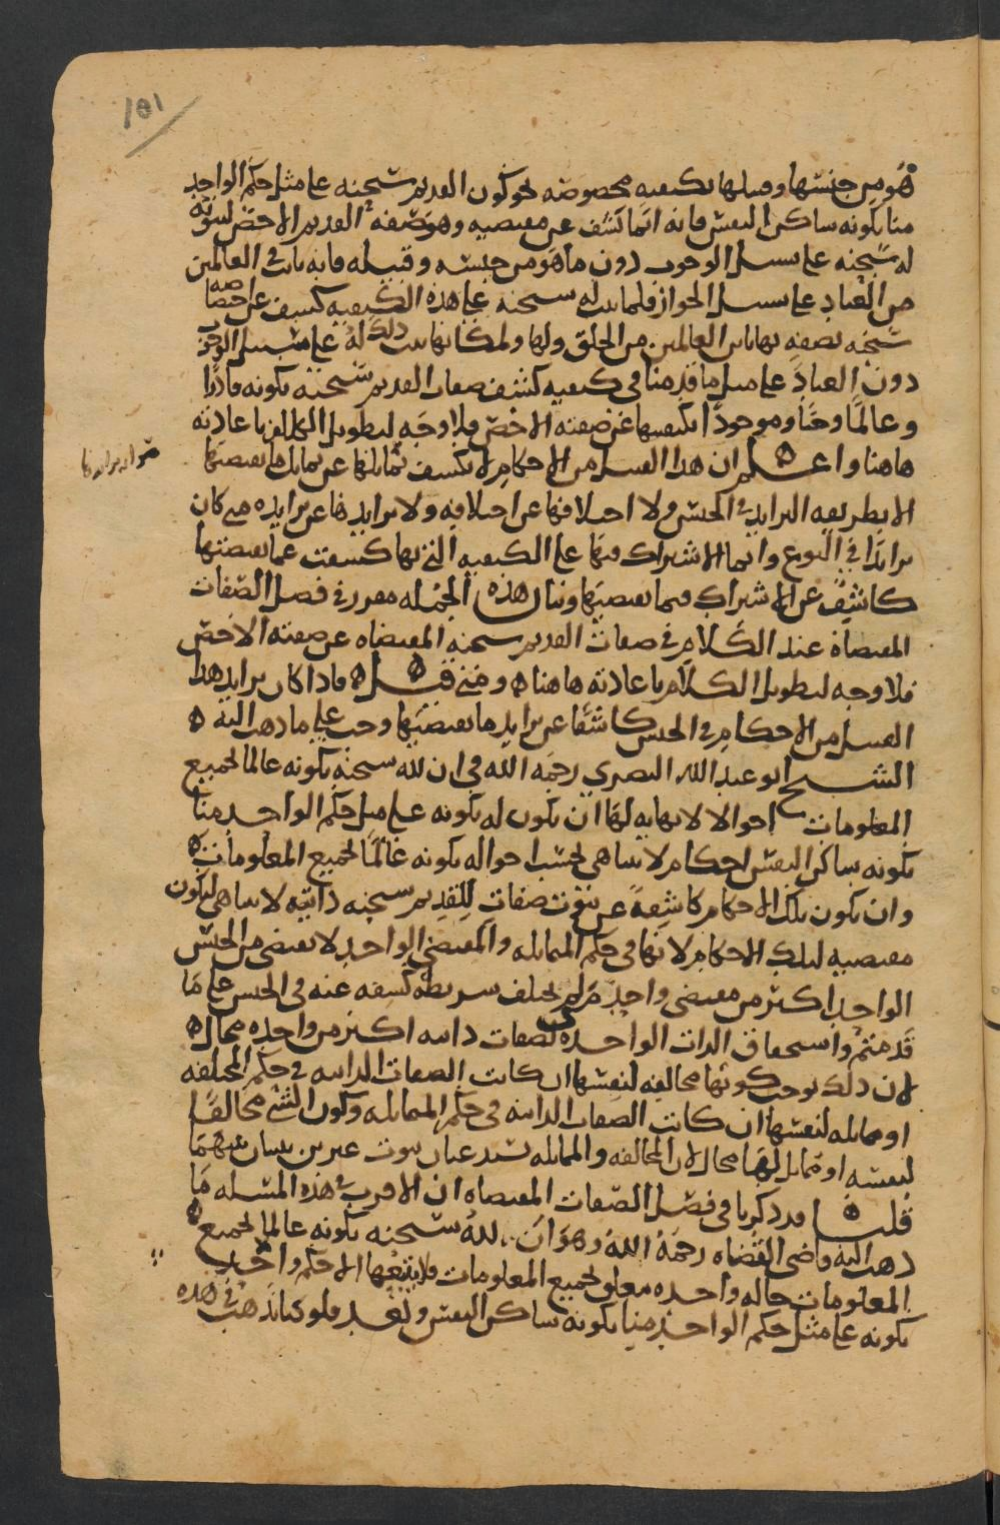 ١٥١
هو من جنسها وقبيلها بكيفيه مخصوصه نحو كون القديم سبحنه على مثل حكم الواحد
منا بكونه ساكن النفس فانه انما كشف عن مقتضيه وهو صفه القديم الاخص لثبوته
له سبحنه على سبيل الوجوب دون ما هو من جنسه وقبيله فانه ثابت في العالمين
من العباد على سبيل الجواز فلما ثبت له سبحنه على هذه الكيفيه كشف عن اختصاصه
سبحنه بصفه بها باين العالمين من الخلق ولها ولمكانها ثبت ذلك له على سبيل الوجوب
دون العباد على مثل ما قدمنا في كيفيه كشف صفات القديم سبحنه بكونه قادرا
وعالما وحيا وموجودا بكيفيتها عن صفته الاخص فلا وجه لتطويل الكلام باعادته
هاهنا واعلم ان هذا القبيل من الاحكام لا يكشف تماثلها عن تماثل ما يقتضيها
الا بطريقه التزايد في الجنس ولا اختلافها عن اختلافه ولا تزايدها عن تزايده متى كان
تزايدا في النوع وانما الاشتراك فيها على الكيفيه التي بها كشفت عما يقتضيها
كاشف عن الاشتراك فيما يقتضيها وبيان هذه الجمله مقرر في فصل الصفات
المقتضاة عند الكلام في صفات القديم سبحنه المقتضاه عن صفته الاخص
فلا وجه لتطويل الكلام باعادته هاهنا ومتى قيل فاذا كان تزايد هذا
القبيل من الاحكام في الجنس كاشفا عن تزايد ما يقتضيها وجب على ما ذهب اليه
الشيخ ابو عبد الله البصري رحمه الله في ان لله سبحنه بكونه عالما لجميع
المعلومات احوالا لا نهايه لها ان يكون له بكونه على مثل حكم الواحد منا
بكونه ساكن النفس احكام لا تتناهى بحسب احواله بكونه عالما لجميع المعلومات
وان يكون تلك الاحكام كاشفة عن ثبوت صفات للقديم سبحنه ذاتيه لا تتناهى لتكون
مقتضيه لتلك الاحكام لانها في حكم المتماثله والمقتضي الواحد لا يقتضي من الجنس
الواحد اكثر من مقتضى واحد متى لم يختلف شريطه كشفه عنه في الجنس على ما
قدمتم واستحقاق الذات الواحده لصفات ذاتيه اكثر من واحده محال
لان ذلك يوجب كونها مخالفه لنفسها ان كانت الصفات الذاتيه في حكم المختلفه
او مماثله لنفسها ان كانت الصفات الذاتيه في حكم المتماثله وكون الشي مخالفا
لنفسه او مماثل لها محال لان المخالفه والمماثله يستدعيان ثبوت غيرين يثبتان بينهما
قلنا قد ذكرنا في فصل الصفات المقتضاه ان الاقرب في هذه المسئله ما
ذهب اليه قاضي القضاه رحمه الله وهو ان لله سبحنه بكونه عالما لجميع
المعلومات حاله واحده متعلق لجميع المعلومات فلا يتبعها الا حكم واحد
بكونه على مثل حكم الواحد منا بكونه ساكن النفس وبعد فلو كنا نذهب في هذه